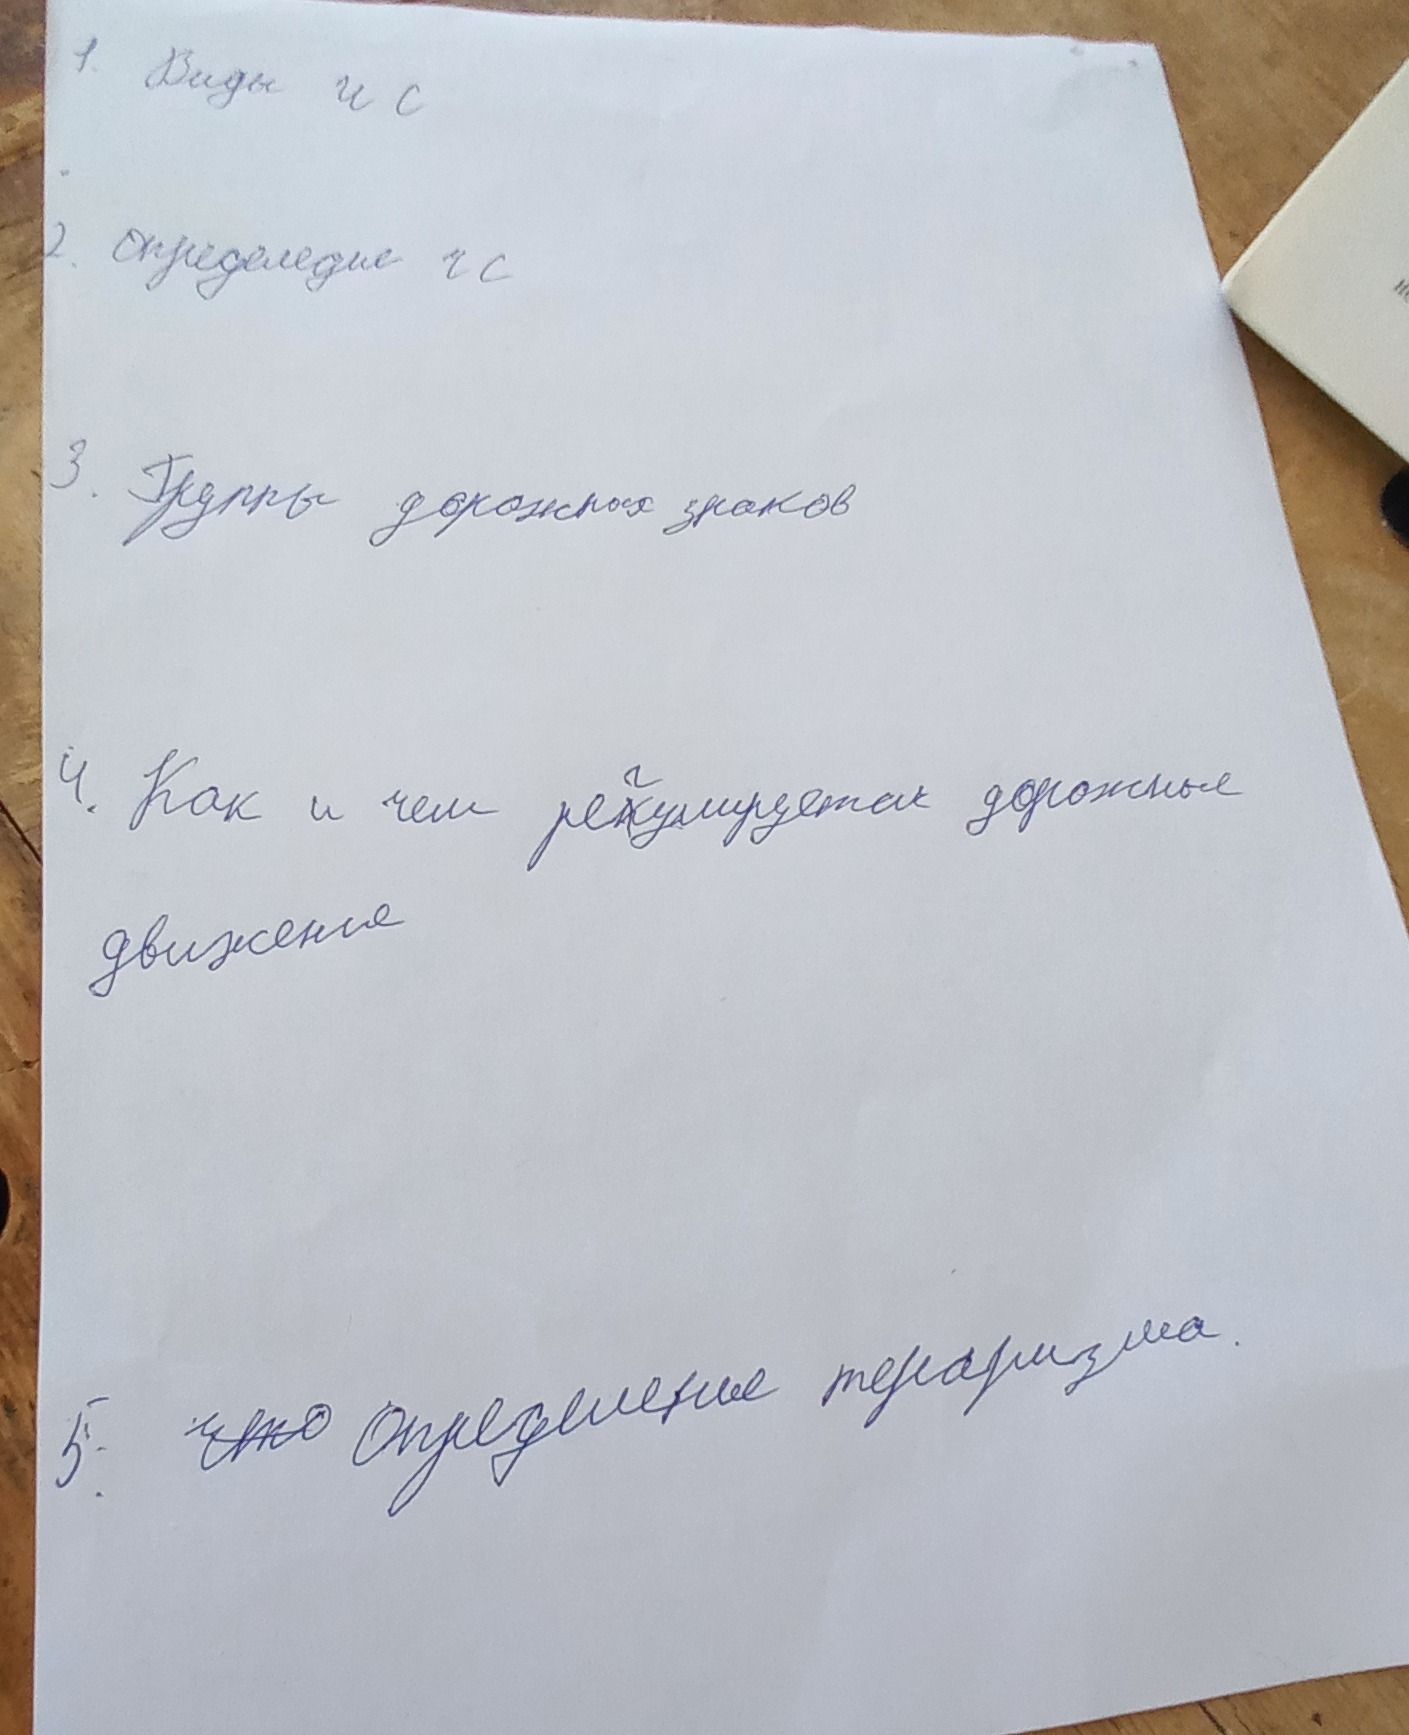 1. Виды ч с
2. определедие ч с
3. Группы дорожных знаков
4. Как и чем регулируетах дорожные
движения
5. что Определение тераризма.